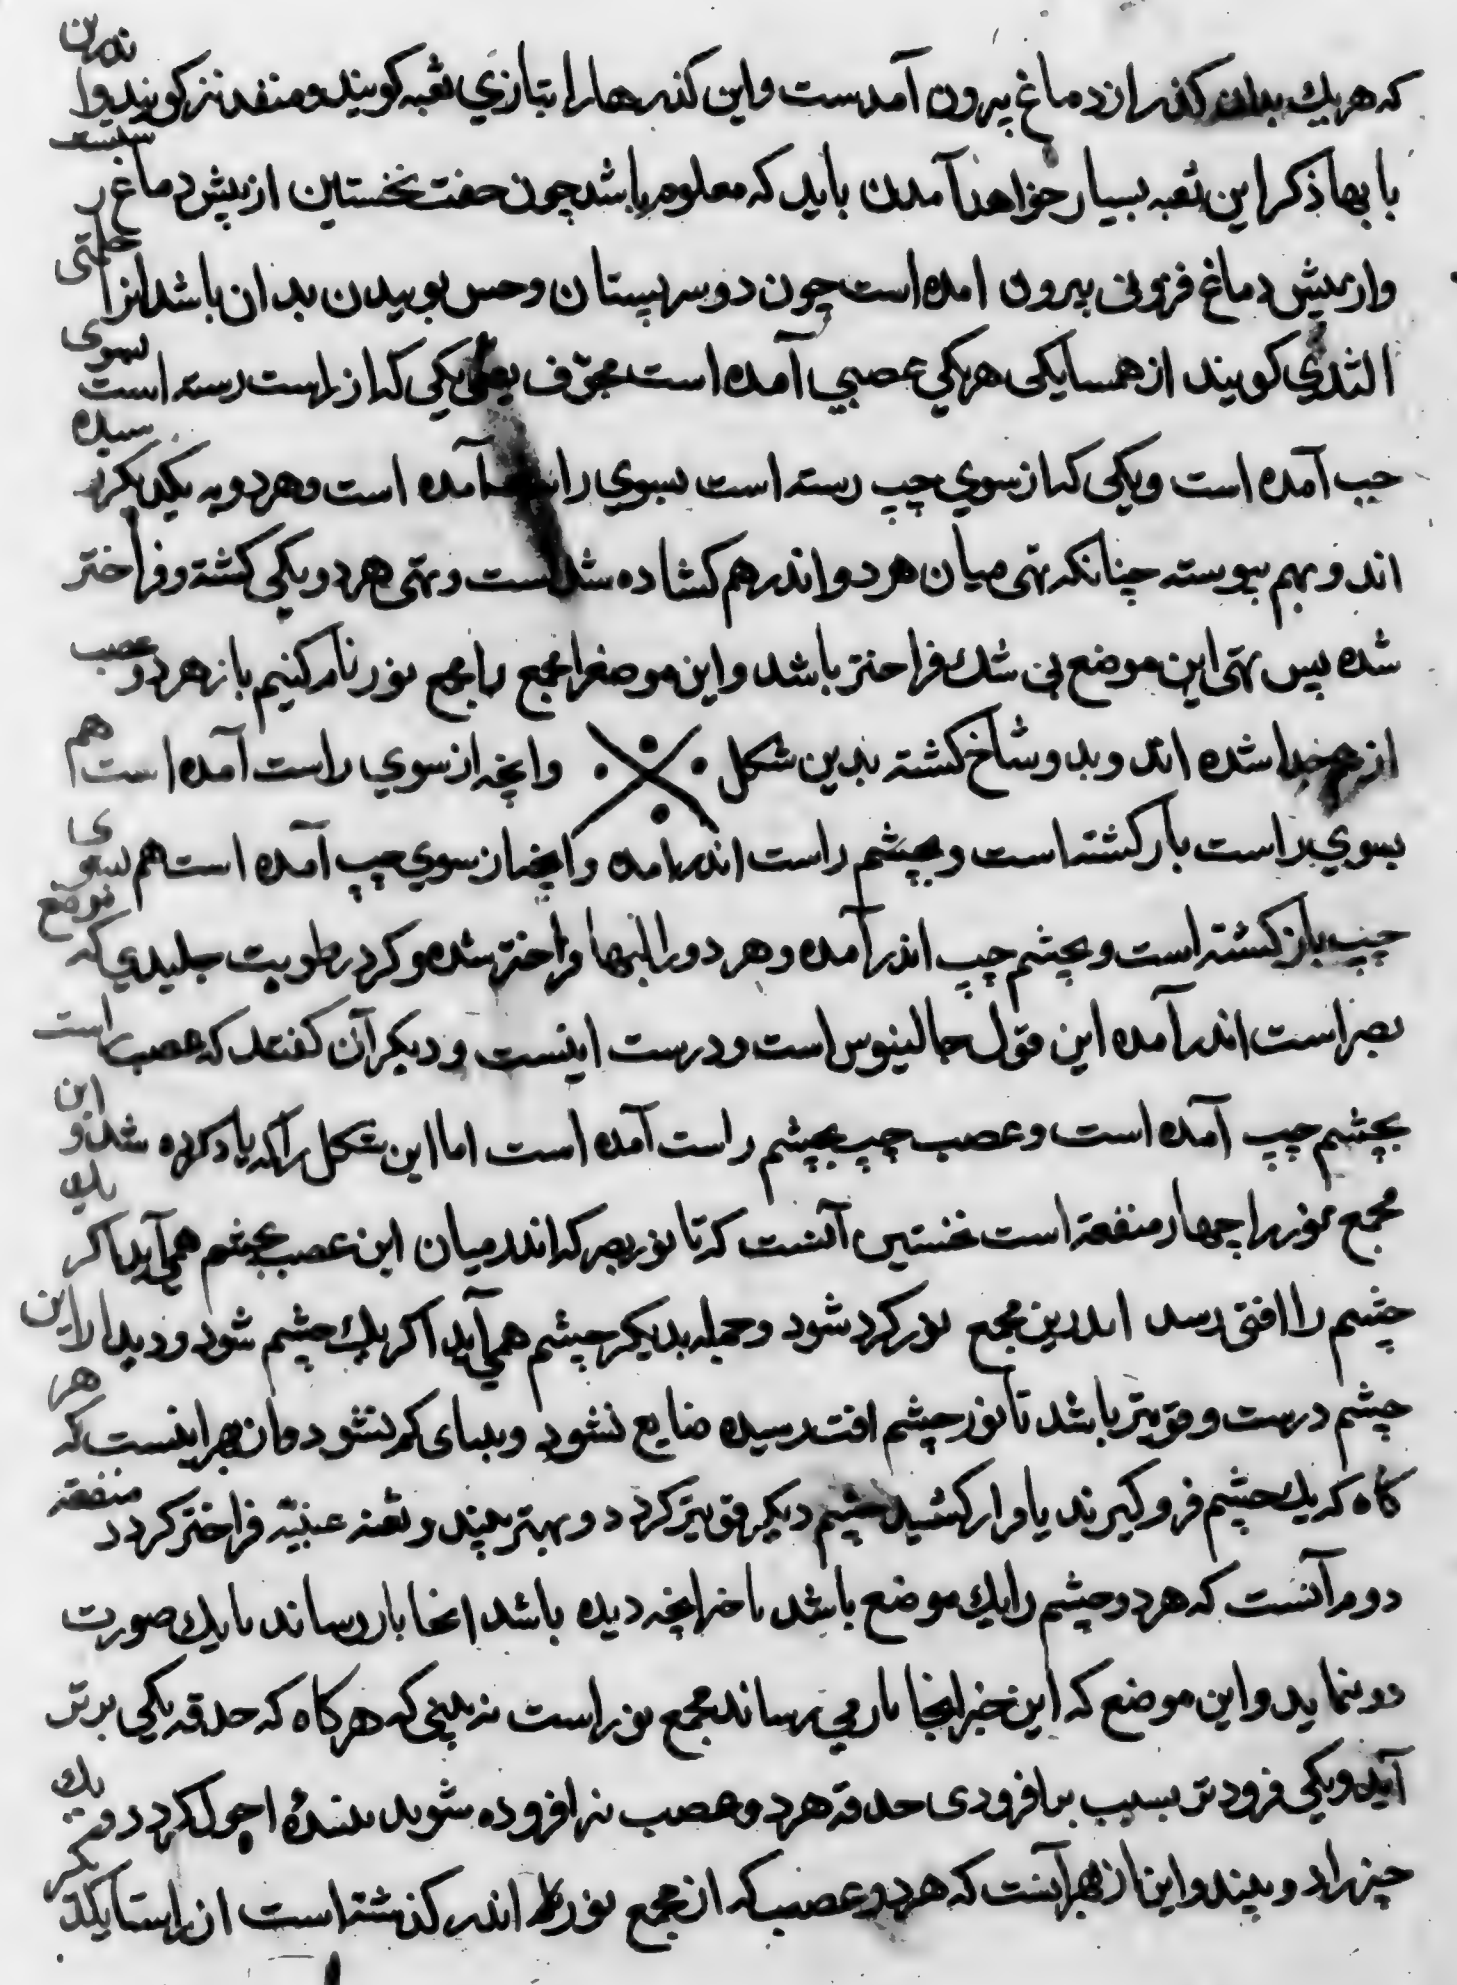 که هر یك بدان کذر از دماغ بیرون آمدست واین کذرها را بتازي ثقبه کویند ومنفد نیز کویند واندرین
بابها ذکر این ثقبه بسیار خواهد آمدن باید که معلوم باشد چون جفت نخستین از پیش دماغ رستست
واز پیش دماغ فزونی بیرون امده است چون دو سر پستان وحس بوییدن بدان باشد انرا حلمتی
الثدي کویند از همسایکی هر یکي عصبي آمده است مجوّف یعنی یکي که از راست رسته است بسوی
چپ آمده است ویکی که از سوي چپ رسته است بسوي راست آمده است وهر دو به یکدیکر رسیده
اند وبهم پیوسته چنانکه تهی میان هر دو اندر هم کشاده شداست وتهی هر دو یکي کشته وفراختر
شده پس تهی این موضع بی شك فراختر باشد واین موضع را مجمع نور نام کنیم باز هر دو عصب
از هم جدا شده اند وبدو شاخ کشته بدین شکل وانچه از سوي راست آمده است هم
بسوي راست باز کشته است وبچشم راست اندر امده وانچه از سوي چپ آمده است هم بسوی
چپ باز کشته است وبچشم چپ اندر آمده وهر دو را لبها فراختر شده وکرد رطوبت جلیدي که موضع
بصر است اندر آمده این قول جالینوس است ودرست اینست ودیکر آن کفتند که عصب راست
بچشم چپ آمده است وعصب چپ بچشم راست آمده است اما این شکل را که یاد کرده شد واین
مجمع نور را چهار منفعة است نخستین آنست که تا نور بصر که اندر میان این عصب بچشم همي آید تا اکر یك
چشم را افتی رسد اندرین مجمع نور کرد شود وجمله بدیکر چشم همي آید تا اکر یك چشم شود ودیدار این
چشم درست وقویتر باشد تا نور چشم افت رسیده ضایع نشود وبینای کم نشود واز بهر اینست که هر
کاه که یك چشم فرو کیرند یا فراز کشید چشم دیکر قویتر کردد وبهتر بیند وثقبه عنبیّه فراختر کردد منفعة
دوم آنست که هر دو چشم را یك موضع باشد تا خبر انچه دیده باشد انجا باز رساند تا یك صورت
دو ننماید واین موضع که این خبر انجا باز مي رساند مجمع نور است نه بینی که هر کاه که حدقه یکي برتر
آید ویکي فرودتر بسبب بر افرودی حدقه هر دو عصب نیز افروده شوند بینندۀ احول کردد ویك
چیز را دو بیند واین از بهر آنست که هر دو عصب که از مجمع نور اندر کذشته است از راستا یکدیکر